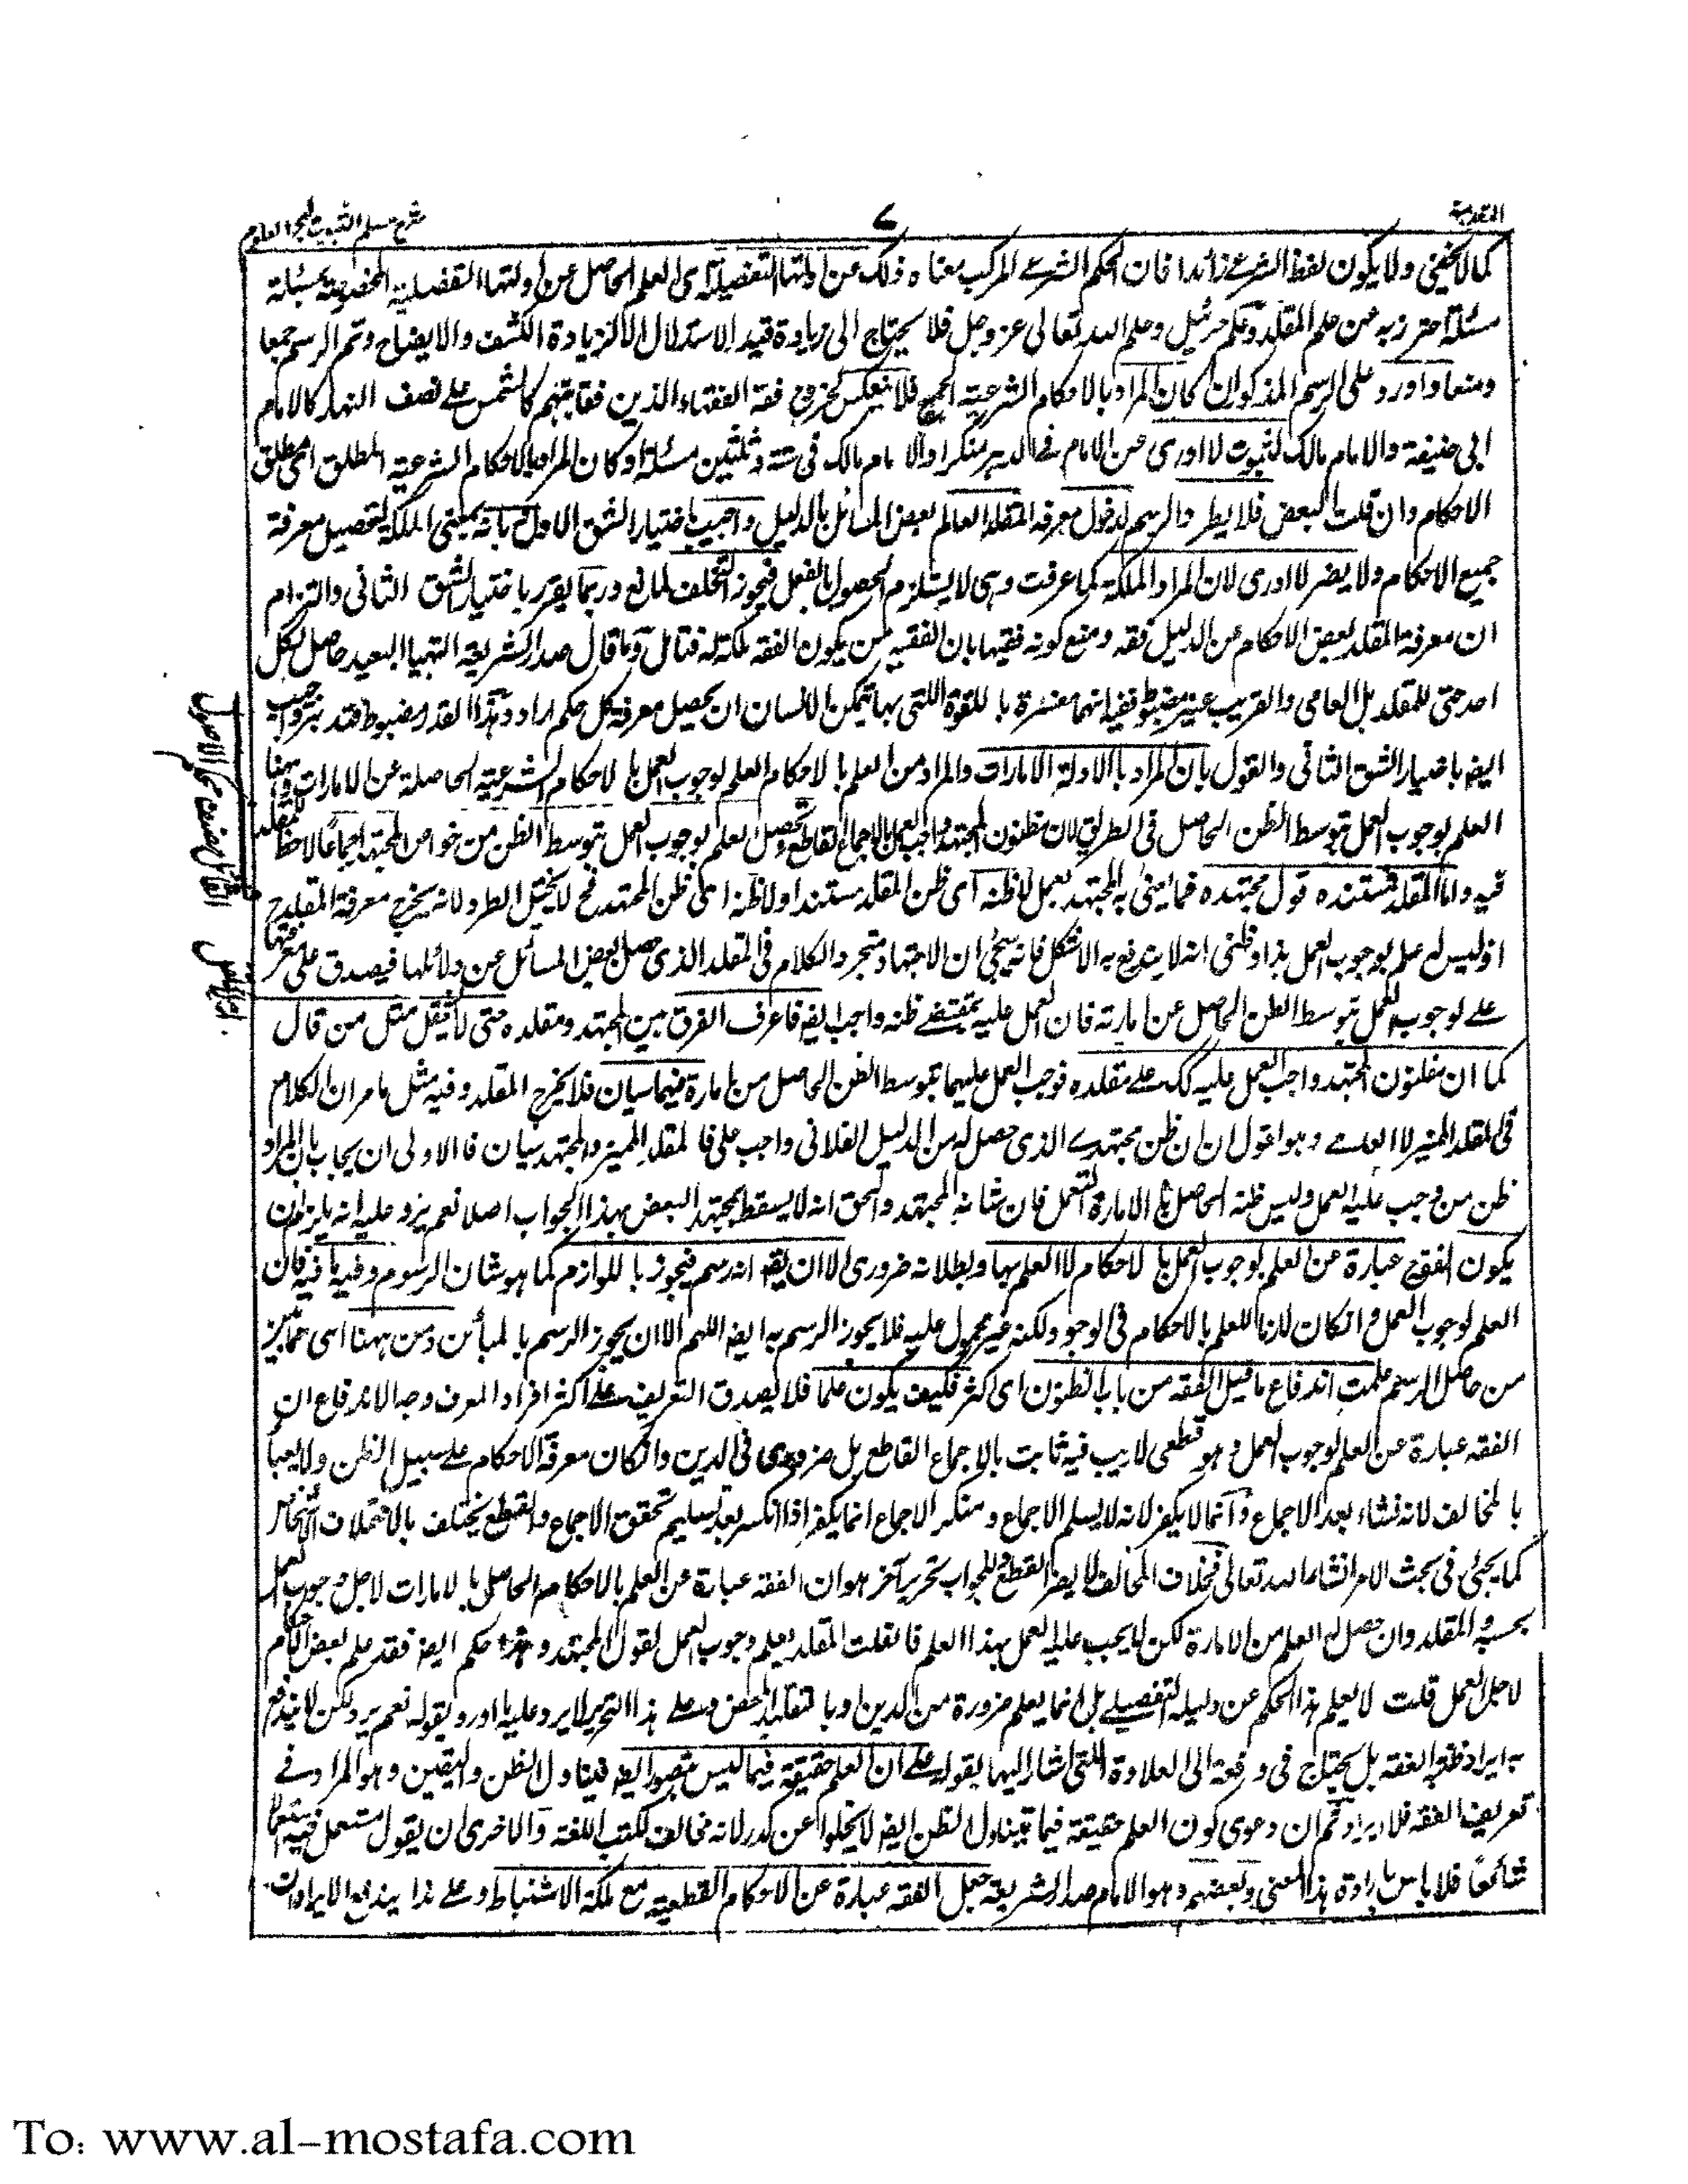 المقدمة
٧
شرح مسلم الثبوت لبحر العلوم
كما لا يخفى ولا يكون لفظ الشرعي زائدا فان الحكم الشرعي المركب معناه ذلك من ادلتها التفصيلية اى العلم الحاصل عن ادلتها التفصيلية المخصوصة بمسئلة
مسئلة احترز به عن علم المقلد وعلم جبرئيل وعلم الله تعالى عز وجل فلا يحتاج الى زيادة قيد الاستدلال الا لزيادة الكشف والايضاح وتم الرسم جمعا
ومنعا واورد على الرسم المذكور ان كان المراد بالاحكام الشرعية الجميع فلا ينعكس لخروج فقه الفقهاء الذين فقاهتهم كالشمس على نصف النهار كالامام
ابى حنيفة والامام مالك لثبوت لا ادرى عن الامام فى الدهر منكرا والامام مالك فى ستة وثلثين مسئلة او كان المراد بالاحكام الشرعية المطلق اى مطلق
الاحكام وان قلت البعض فلا يطرد الرسم لدخول معرفة المقلد العالم بعض المسائل بالدليل واجيب باختيار الشق الاول بانه بمعنى الملكة لتحصيل معرفة
جميع الاحكام ولا يضر لا ادرى لان المراد الملكة كما عرفت وهى لا يستلزم الحصول بالفعل فيجوز التخلف لمانع وربما يقرر باختيار الشق الثانى والتزام
ان معرفة المقلد بعض الاحكام عن الدليل فقه ومنع كونه فقيها بان الفقيه من يكون الفقه ملكة له فتأمل وما قال صدر الشريعة التهيا البعيد حاصل لكل
احد حتى للمقلد بل العامى والقريب غير مضبوط ففيه انهما مفسرة بالقوة اللتى بها يتمكن الانسان ان يحصل معرفة كل حكم اراد وهذا القدر مضبوط فتدبر واجيب
ايضا باختيار الشق الثانى والقول بان المراد بالادلة الامارات والمراد من العلم بالاحكام العلم لوجوب العمل بالاحكام الشرعية الحاصلة عن الامارات وههنا
العلم بوجوب العمل بتوسط الظن الحاصل فى الطريق لان مظنون المجتهد واجب العمل بالاجماع القاطع وتحصيل العلم بوجوب العمل بتوسط الظن من خواص المجتهد اجماعا لا حظ للمقلد
فيه واما المقلد فمستنده قول مجتهده فما يفتى به المجتهد يعمل لا ظنه اى ظن المقلد مستندا ولا ظنه اى ظن المجتهد فح لا يختل الطرد لانه يخرج معرفة المقلد ح
اذ ليس له علم بوجوب العمل هذا وظنى انه لا يندفع به الاشكال فانه سيجئ ان الاجتهاد متجز والكلام فى المقلد الذى حصل بعض المسائل عن دلائلها فيصدق على معرفتها
على لوجوب العمل بتوسط الظن الحاصل عن امارته فان العمل عليه بمقتضى ظنه واجب ايضا فاعرف الفرق بين المجتهد ومقلده حتى لا تقل مثل من قال
كما ان مظنون المجتهد واجب العمل عليه كك على مقلده فوجب العمل عليهما بتوسط الظن الحاصل من امارة فهما سيان فلا يخرج المقلد وفيه مثل ما مر ان الكلام
فى المقلد المميز لا العامى وهو اقول ان ظن مجتهدى الذى حصل له من الدليل الفلانى واجب على فالمقلد المميز والمجتهد سيان فالاولى ان يجاب بان المراد
ظن من وجب عليه العمل وليس ظنه الحاصل بالامارة للعمل فان شانه المجتهد والحق انه لا يسقط بمجتهد البعض بهذا الجواب اصلا نعم يرد عليه انه يلزم ان
يكون الفقه عبارة عن العلم بوجوب العمل بالاحكام لا العلم بها وبطلانه ضرورى الا ان يقه انه رسم فيجوز باللوازم كما هو شان الرسوم وفيه ما فيه فان
العلم لوجوب العمل وان كان لازما للعلم بالاحكام فى الوجود ولكنه غير محمول عليه فلا يجوز الرسم به ايضا اللهم الا ان يجوز الرسم بالمبائن ومن ههنا اى مما تبين
من حاصل الرسم علمت اندفاع ما قيل الفقه من باب الظنون اى اكثر فكيف يكون علما فلا يصدق التعريف على اكثر افراد المعرف وجه الاندفاع ان
الفقه عبارة عن العلم لوجوب العمل وهو قطعى لا ريب فيه ثابت بالاجماع القاطع بل ضرورى فى الدين وان كان معرفة الاحكام على سبيل الظن ولا يعبأ
بالمخالف لانه نشاء بعد الاجماع وانما لا يكفر لانه لا يسلم الاجماع ومنكر الاجماع انما يكفر اذا انكر بعد تسليم تحقق الاجماع والقطع يختلف بالاختلاف الاشخاص
كما يجئ فى بحث الامر انشاء الله تعالى فخلاف المخالف لا يضر القطع للجواب تحرير آخر هو ان الفقه عبارة عن العلم بالاحكام الحاصل بالامارات لاجل وجوب العمل
بحسبه والمقلد وان حصل له العلم من الامارة لكن لا يجب عليه العمل بهذا العلم فانقلت المقلد يعلم وجوب العمل لقول المجتهد وهذا حكم ايضا فقد علم بعض الاحكام
لاجل العمل قلت لا يعلم هذا الحكم عن دليله التفصيلى بل انما يعلم ضرورة من الدين او بالتقليد المحض وعلى هذا التحرير لا يرد عليه ما اورد بقوله نعم يرد لكن لا يندفع
به ايراد ظنية الفقه بل يحتاج فى دفعه الى العلاوة اللتى اشار اليها بقوله على ان العلم حقيقة فيما ليس بتصور ايضا فيتناول الظن واليقين وهو المراد فى
تعريف الفقه فلا ايراد ثم ان دعوى كون العلم حقيقة فيما يتناول الظن ايضا لا يخلوا عن كدر لانه مخالف لكتب اللغة والاحرى ان يقول مستعمل فيه استعمالا
شائعا فلا باس بارادة هذا المعنى وبعضهم وهو الامام صدر الشريعة جعل الفقه عبارة عن الاحكام القطعية مع ملكة الاستنباط وعلى هذا يندفع الايرادات
To: www.al-mostafa.com